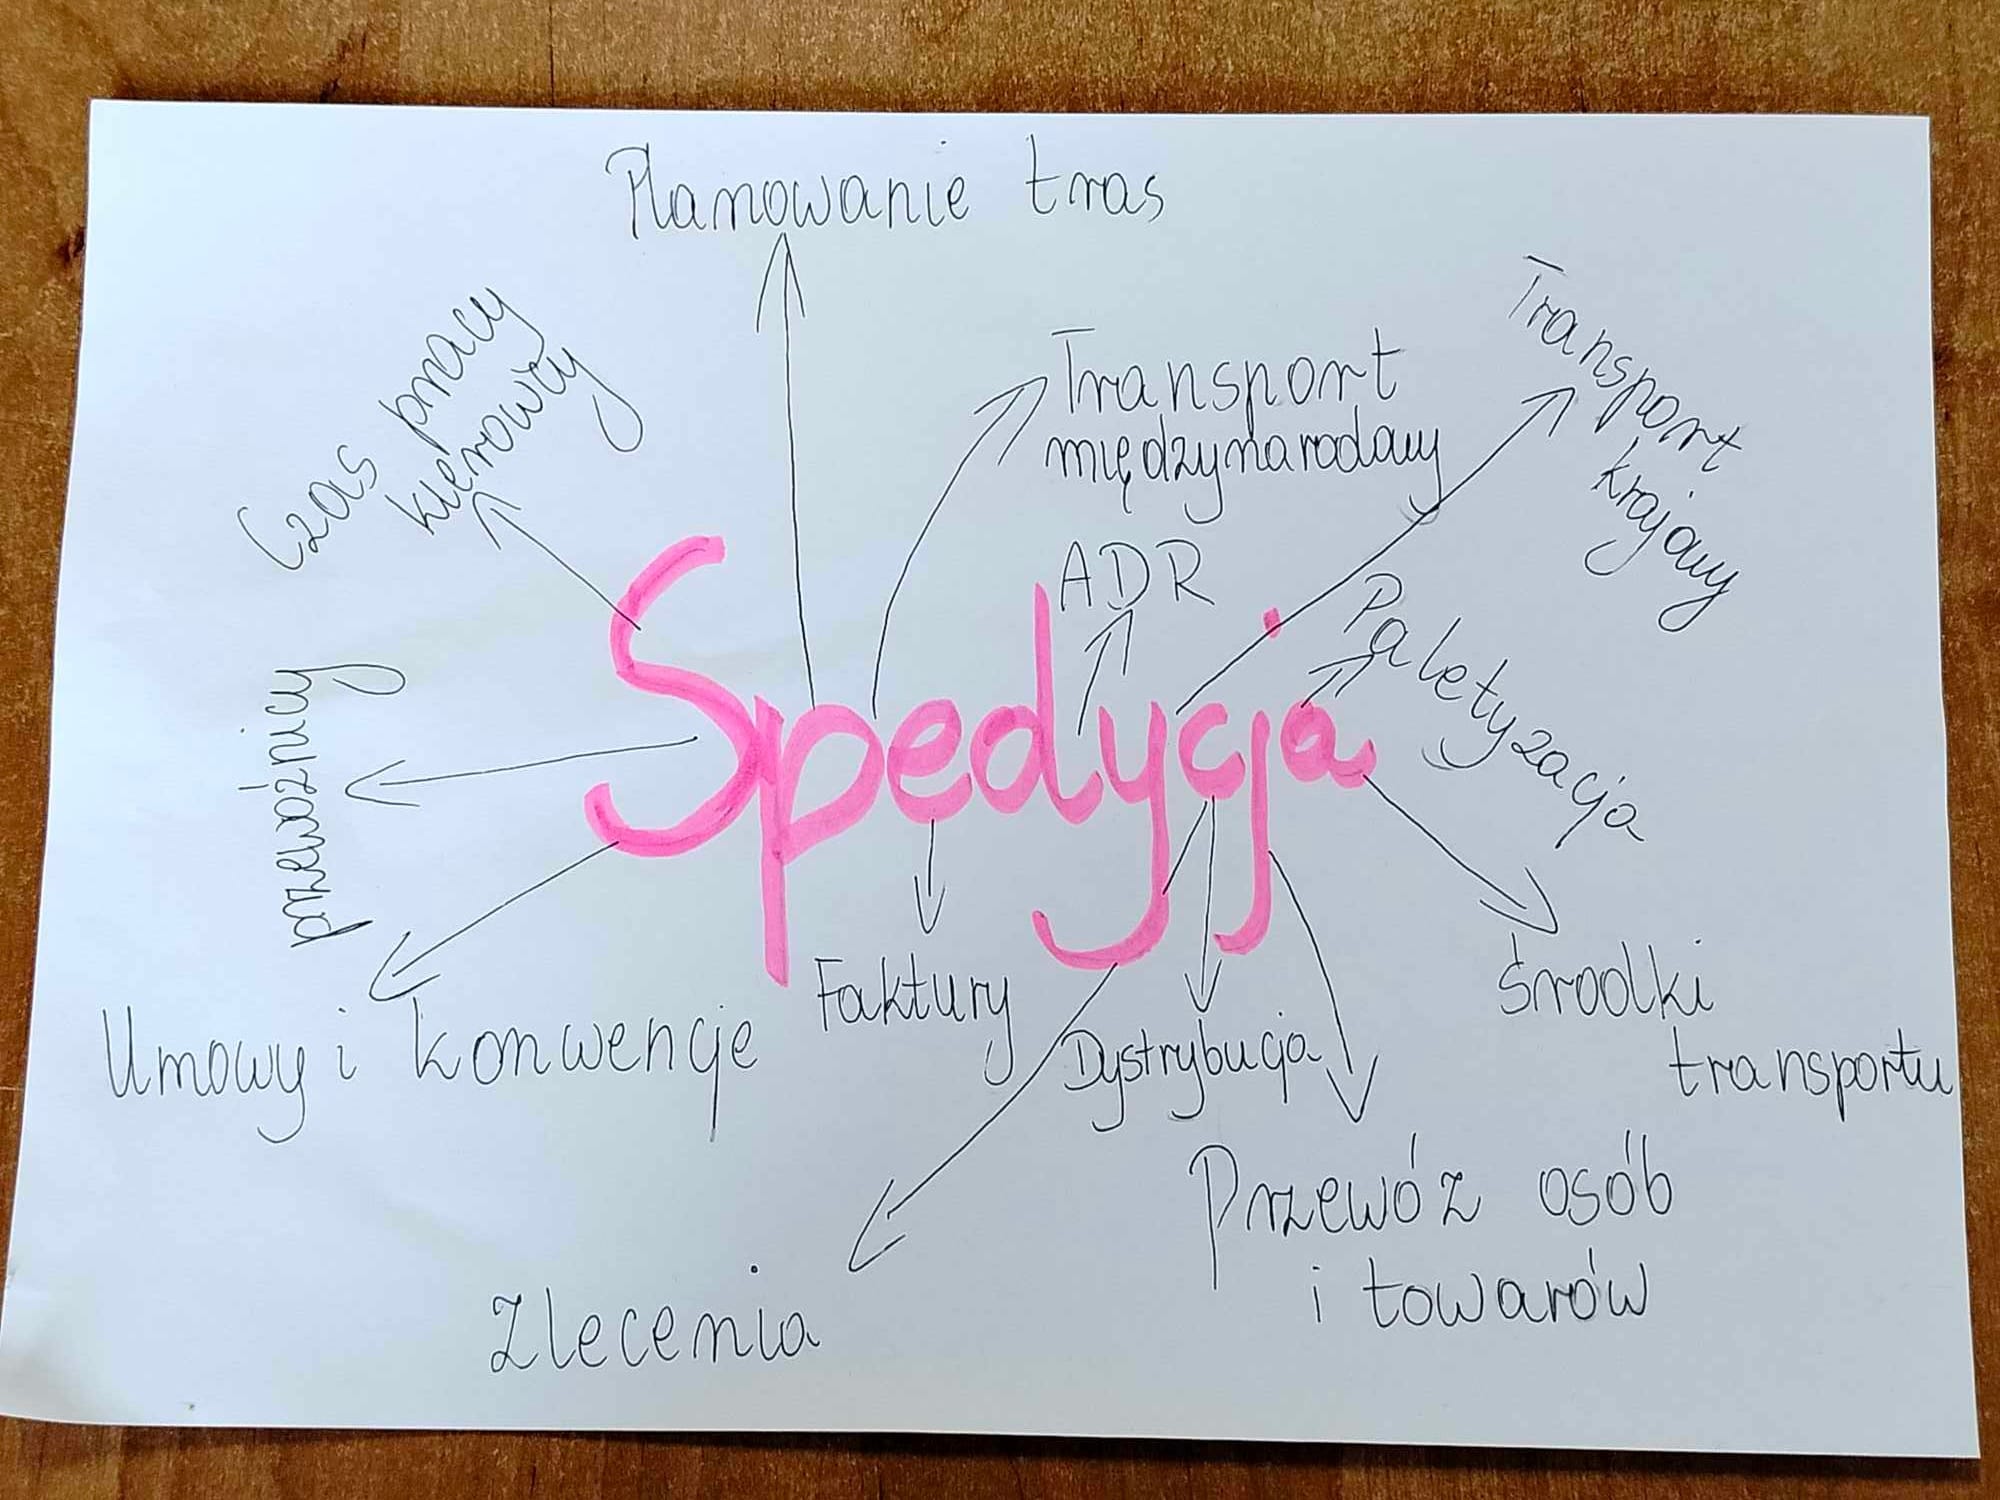 Planowanie tras
Czas pracy
kierowcy
Transport
międzynarodowy
Transport
krajowy
ADR
Paletyzacja
przewoźnicy
Spedycja
Umowy i konwencje
Faktury
Dystrybucja
Środki
transportu
Przewóz osób
i towarów
Zlecenia